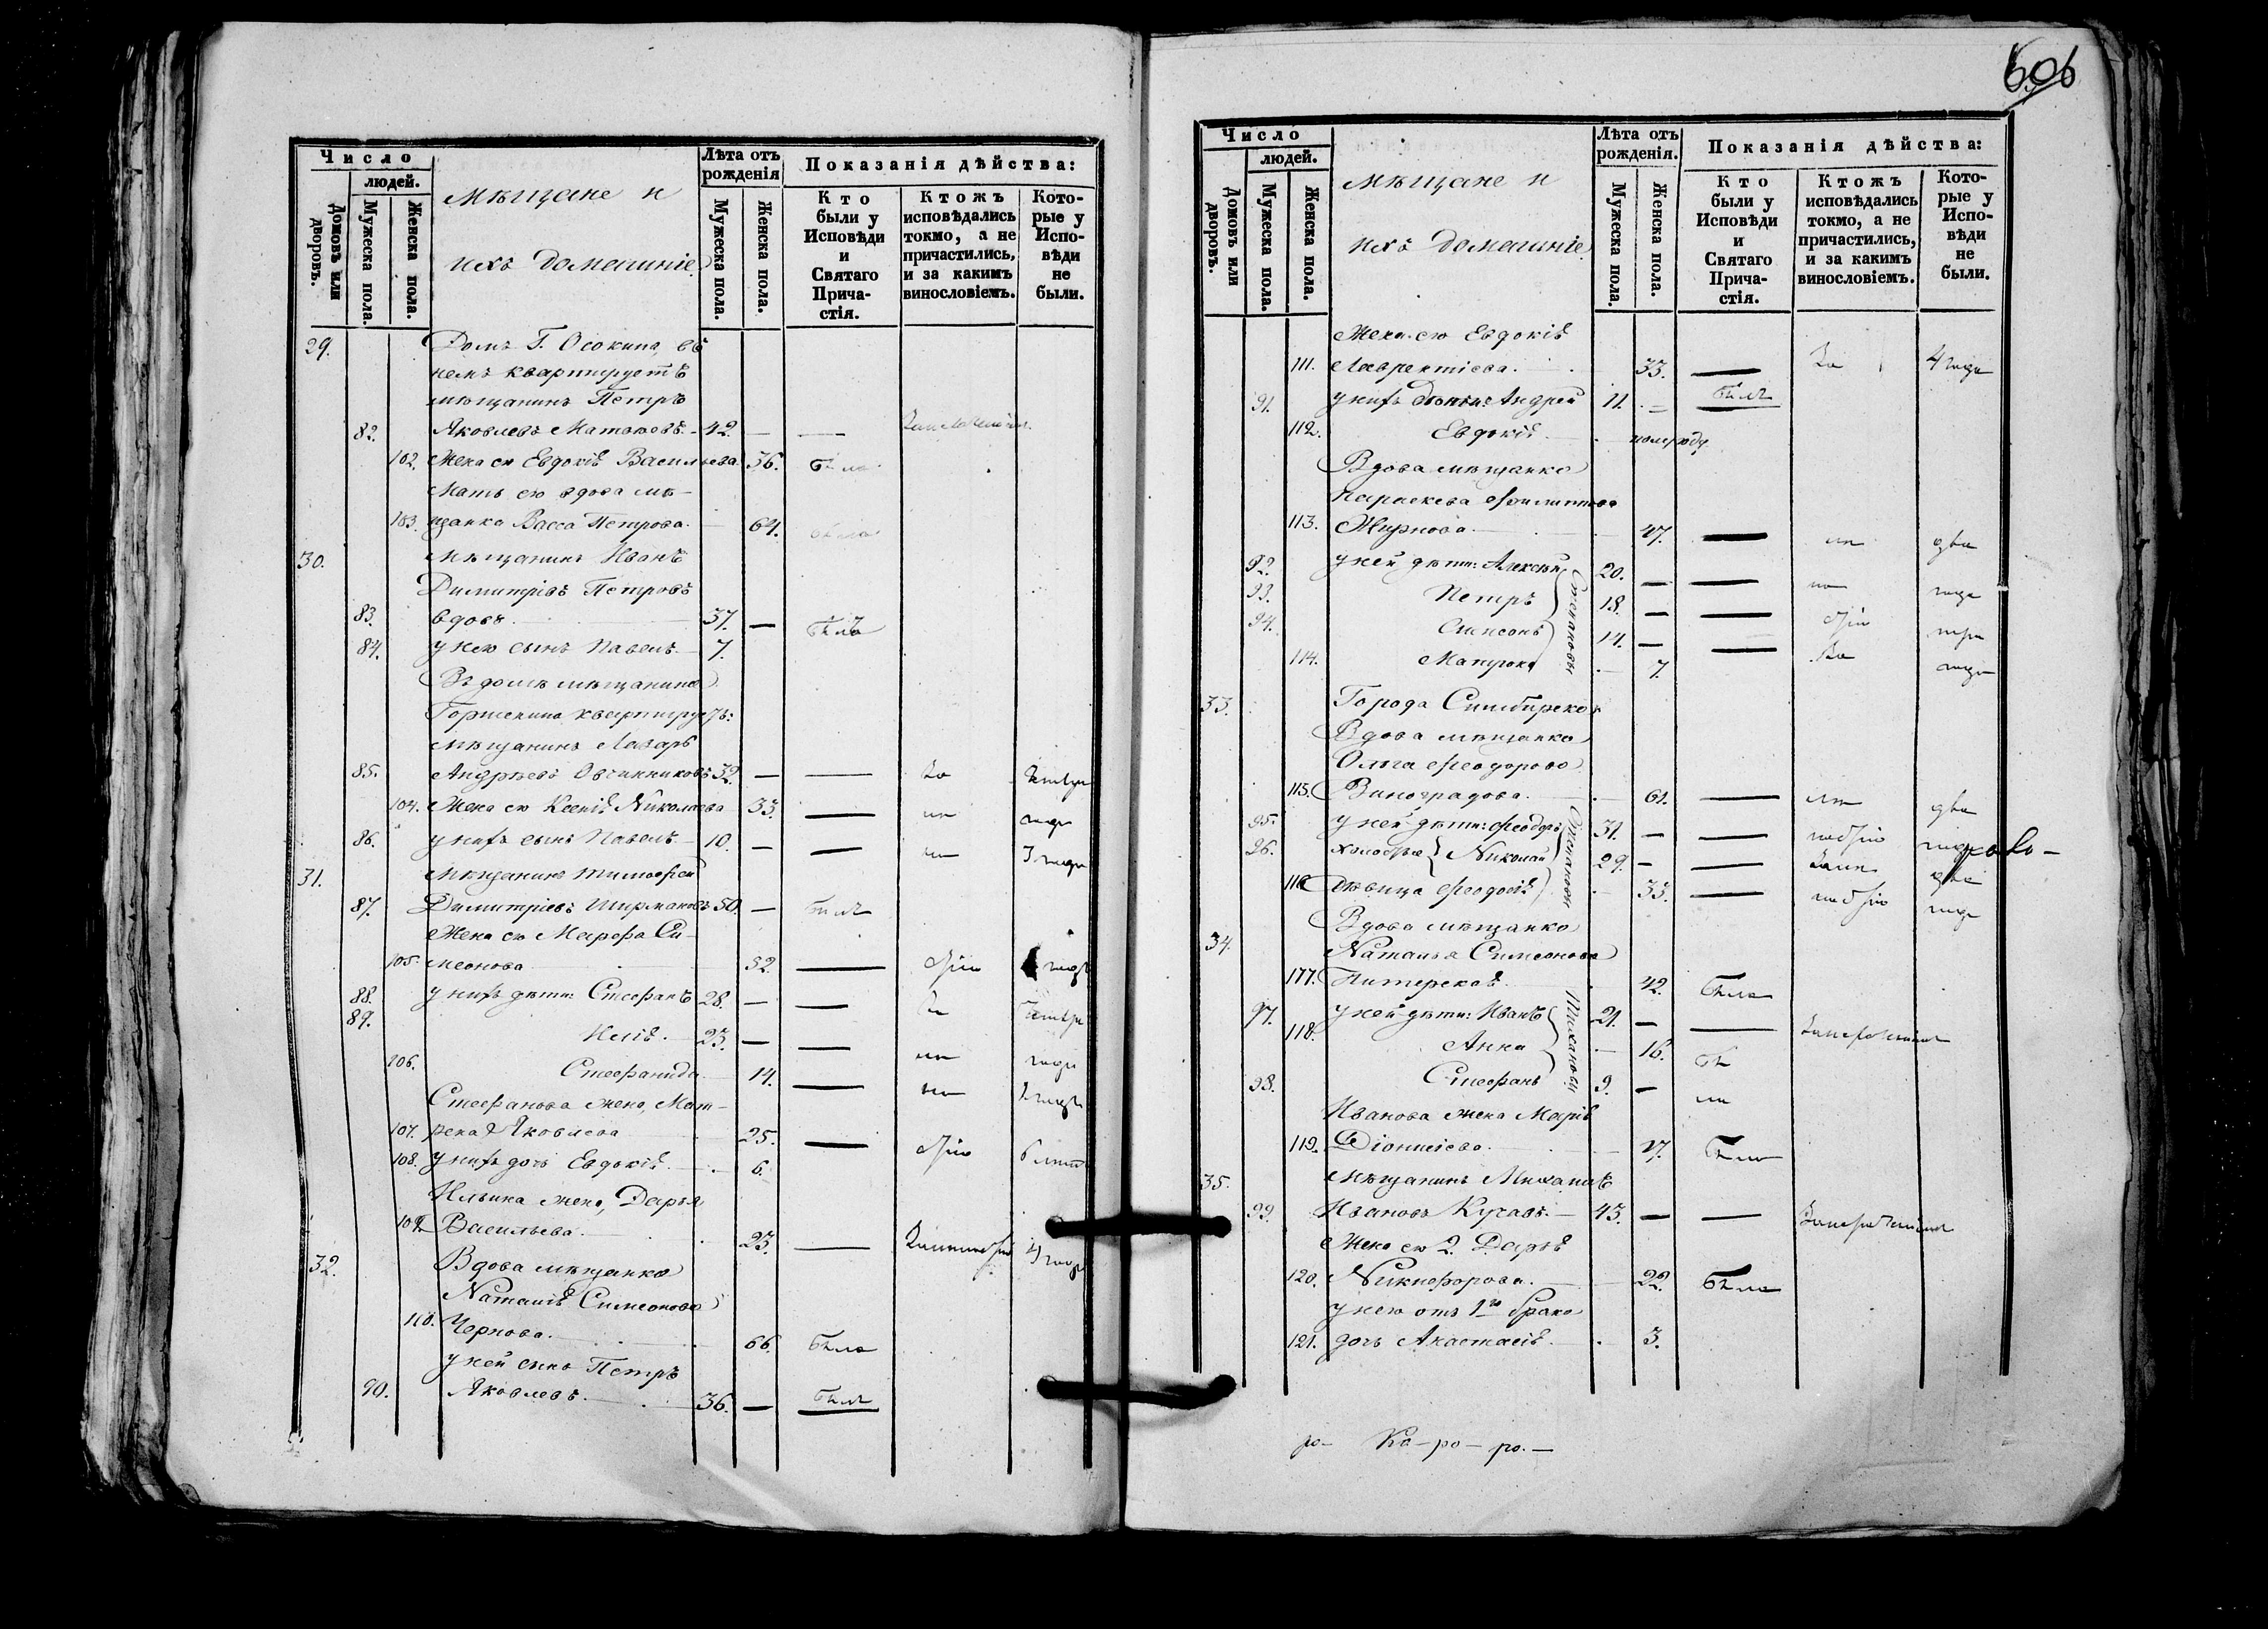 606
Число
людей.
Домовъ или дворовъ.
Мужеска пола.
Женска пола.
Мѣщане и
ихъ домашніе
Лѣта отъ рожденія
Мужеска пола.
Женска пола.
Показанія дѣйства:
Кто были у Исповѣди и Святаго Прича-стія.
Ктожъ исповѣдались токмо, а не причастились, и за какимъ винословіемъ.
Кото-рые у Испо-вѣди не были.
29. Домъ Г. Осокина, въ
немъ квартируетъ
мѣщанинъ Петръ
82. Яковлевъ 42. — —
102. Жена ея Евдокія Васильева 36. была
Мать его вдова мѣ-
103. щанка Васса Петрова. 64. была
30. Мѣщанинъ Иванъ
Димитріевъ Петровъ
83. вдовъ 37. —
84. у него сынъ Павелъ 7.
Въ домѣ мѣщанина
Горшенина квартируетъ:
мѣщанинъ Лазарь
85. Андреевъ Овчинниковъ 32. — — За
104. Жена его Ксенія Николаева 33. —
86. у нихъ сынъ Павелъ 10. — — 3 года
31. Мѣщанинъ Тимофей
87. Димитріевъ Ширмановъ 50. — былъ
Жена его Марфа Си-
105. меонова 52. —
88. у нихъ дѣти: Стефанъ 28. — —
89. Илія. 23. — —
106. Стефанида 14. —
Стефанова жена, Мат-
107. рена Яковлева 25. —
108. у нихъ дочь Евдокія 6.
Ильина жена, Дарья
109. Васильева. 23. —
32. Вдова мѣщанка
Наталія Симеонова
110. Чернова. 66. была
у ней сынъ Петръ
90. Яковлевъ. 36. — былъ
Число
людей.
Домовъ или дворовъ.
Мужеска пола.
Женска пола.
Мѣщане и
ихъ домашніе
Лѣта отъ рожденія.
Мужеска пола.
Женска пола.
Показанія дѣйства:
Кто были у Исповѣди и Святаго Прича-стія.
Ктожъ исповѣдались токмо, а не причастились, и за какимъ винословіемъ.
Кото-рые у Испо-вѣди не были.
Жена его Евдокія
111. Лаврентіева. 33. — За 4 года
91. у нихъ дѣти: Андрей 11. — былъ
112. Евдокія полугоду
Вдова мѣщанка
Параскева Филиппова
113. Жирнова 47. — два
92. у ней дѣти: Алексѣй 20. — — года
93. Петръ 18. — —
94. Симеонъ 14. — —
114. Матрона 7. За года
Степановы
33. Города Симбирска
Вдова мѣщанка
Ольга Феодорова
115. Виноградова. 61. — два
95. у ней дѣти: Феодоръ 31. — —
96. холостые Николай 29. — —
116. Дѣвица Феодосія 33. —
34. Вдова мѣщанка
Наталья Симеонова
117. Питерская 42. была
97. у ней дѣти: Иванъ 21. — —
118. Анна 16.
98. Стефанъ 9. —
Иванова жена Марія
119. Діонисіева. была
35. Мѣщанинъ Михаилъ
99. Ивановъ 43. — —
Жена его 2. Дарья
120. Никифорова. 22. была
у него отъ 1го брака
121. дочь Анастасія. 3.
ро- Ка-ро-ро.-